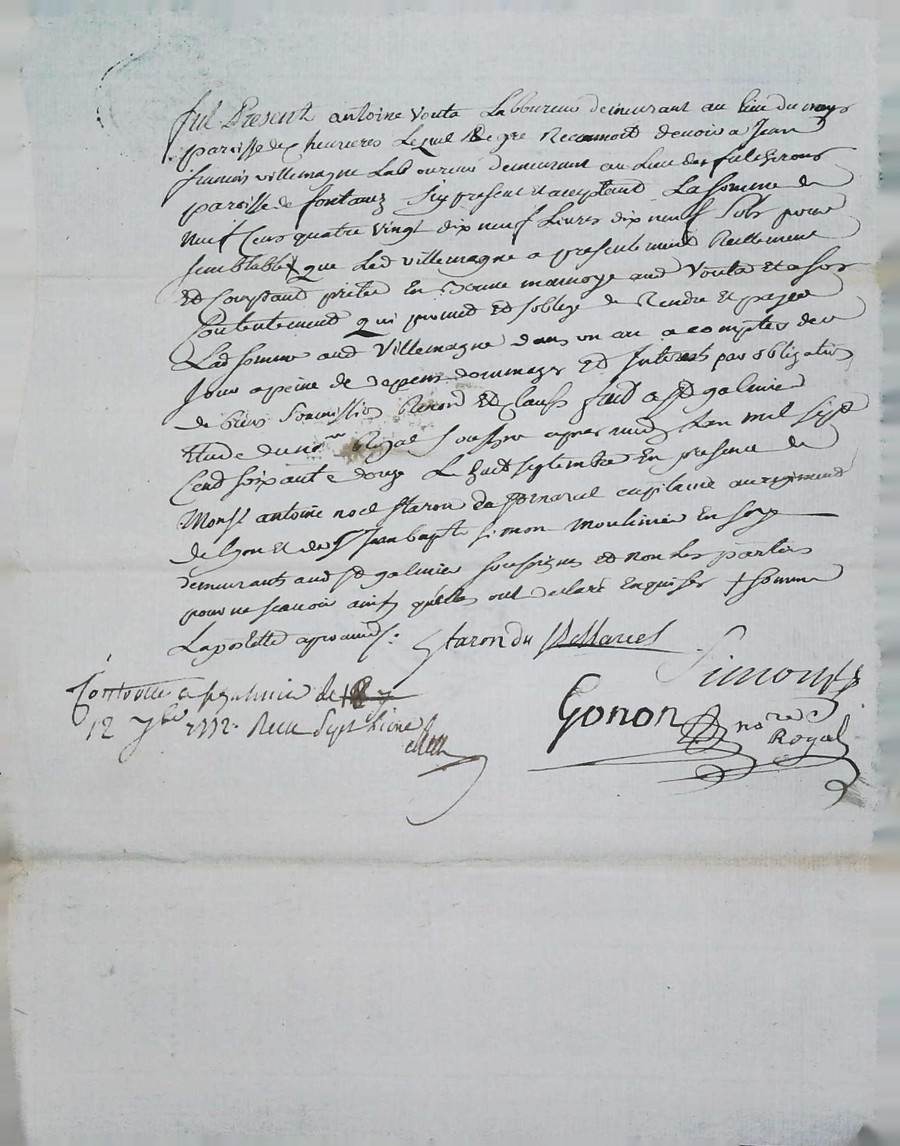 fut Présent antoine vouta Laboureur demeurant au lieu du
paroisse de Chevrieres Lequel de gre Reconnoit devoir a Jean
francois villemagne Laboureur demeurant au Lieu des fulchirons
paroisse de fontanez Six present et acceptant La somme de
Neuf Cens quatre vingt dix neuf Livres dix neuf Sols pour
semblable que Led villemagne a presentement Reellement
Et Comptant pretée En Bonne monnoye aud vouta Et a son
Contentement qui promet Et soblige de Rendre Et payer
Lad somme aud villemagne dans un an a compter de ce
Jour a peine de depens dommages Et Interets par obligation
de biens soumission Renon Et Clause fait a St galmier
Etude du nore Royal Soussigne apres midy Lan mil sept
Cend soixante douze Le huit septembre En presence de
Monsr antoine noel Staron de St marcel capitaine au regiment
de Lyon Et de Sr Jean bapte Simon moulinier En soye
demeurants aud St galmier soussignes Et non Les parties
pour ne scavoir ainsy quelles ont declaré Enquises + somme
Lapostille approuvée:
Staron du St Marcel
Simon
Gonon nore Royal
Controllé a St galmier Le
12 7bre 1772. Recu Sept Livres